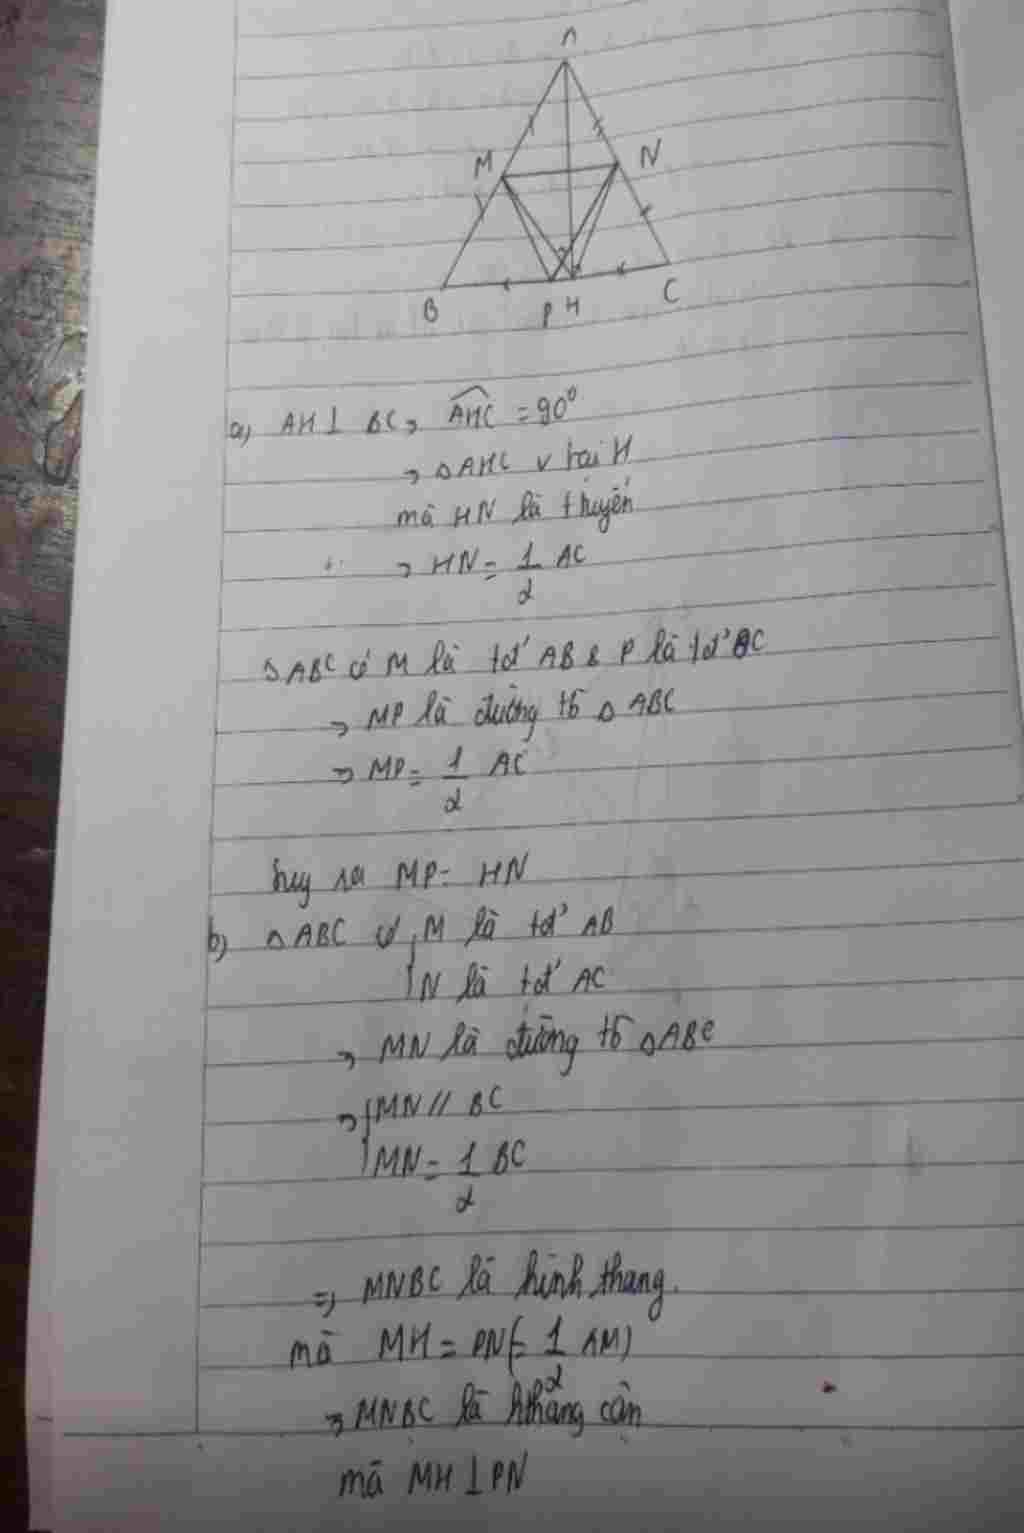 A
M N
B P H C
a) AH ⊥ BC → AHC = 90°
→ △AHC v tại H
mà HN là t'tuyến
→ HN = 1/2 AC
△ABC có M là tđ' AB & P là tđ' BC
→ MP là đường tb △ABC
→ MP = 1/2 AC
Suy ra MP = HN
b) △ABC có { M là tđ' AB
N là tđ' AC
→ MN là đường tb △ABC
→ { MN // BC
MN = 1/2 BC
=> MNBC là hình thang.
mà MH = PN (= 1/2 AM)
→ MNBC là hthang cân
mà MH ⊥ PN